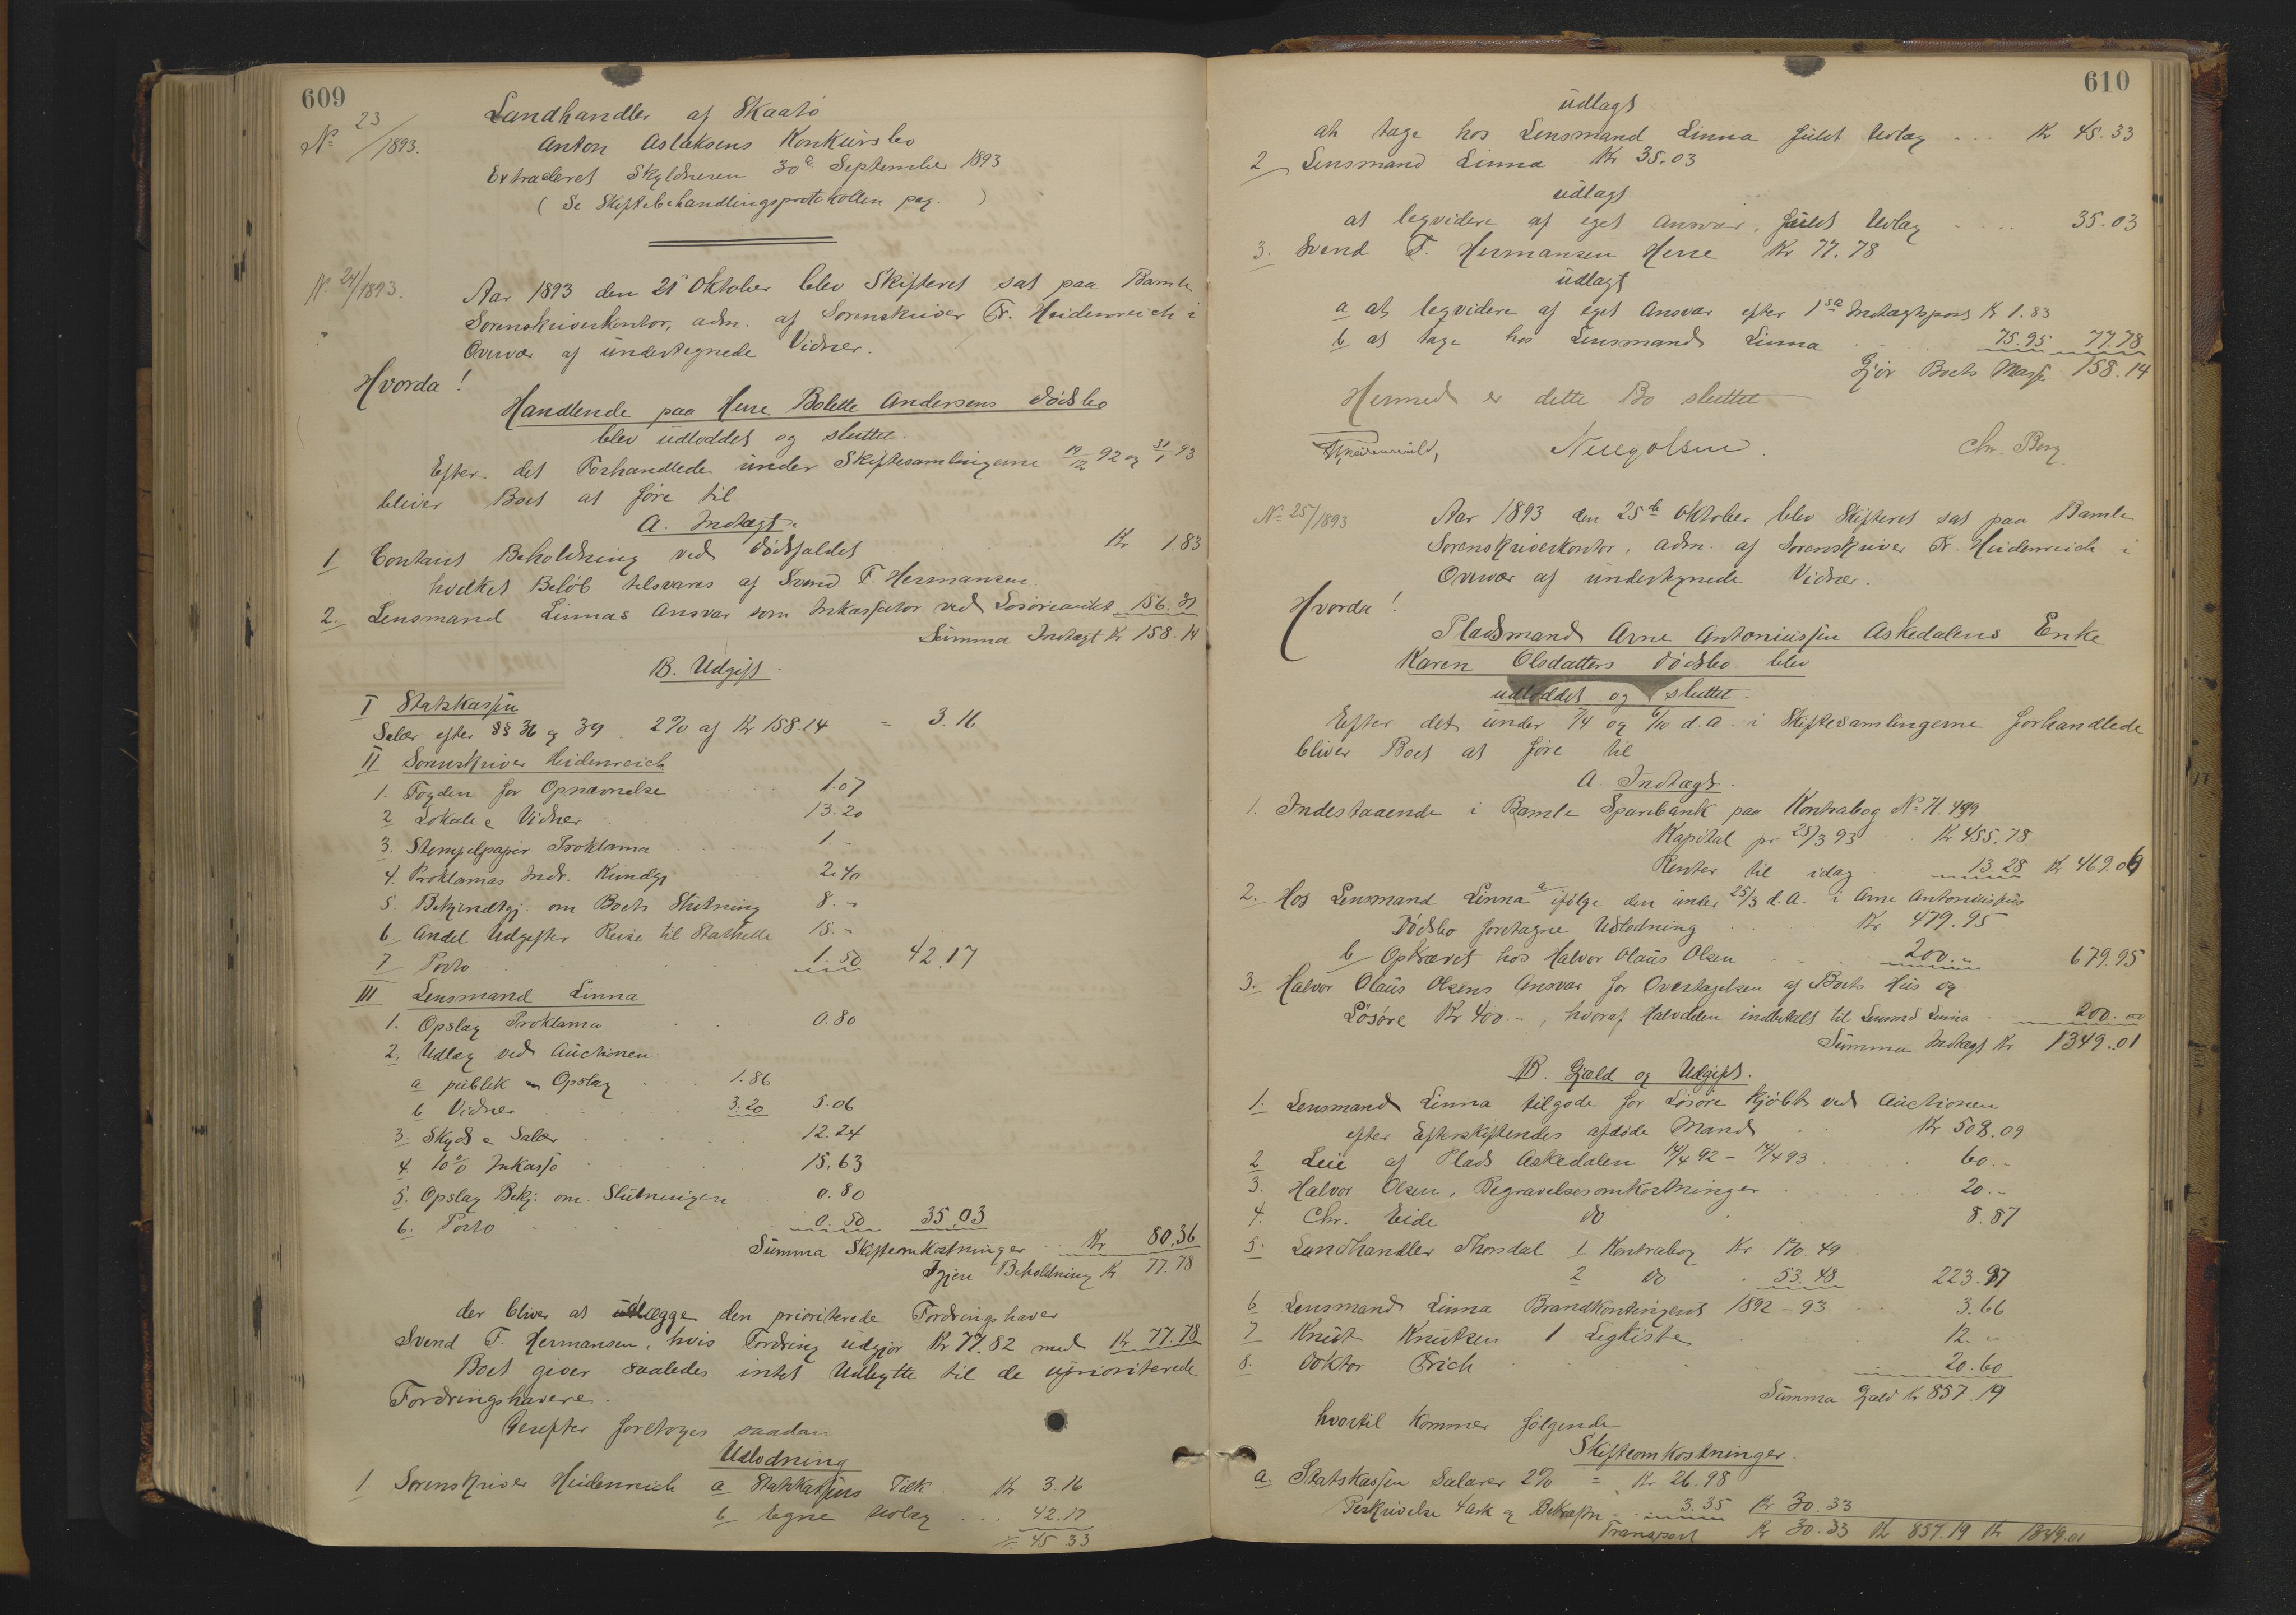 609
No 23/1893.
Landhandler af Skaatø
Anton Aslaksens Konkursbo
Extraderet Skyldneren 30te September 1893
(Se Skiftebehandlingsprotokollen pag. )
No 24/1893.
Aar 1893 den 21 Oktober blev Skifteret sat paa Bamle
Sorenskriverkontor, adm. af Sorenskriver Fr. Heidenreich i
Overvær af undertegnede Vidner.
Hvorda!
Handlende paa Herre Bolette Andersens Dødsbo
blev udloddet og sluttet.
Efter det Forhandlede under Skiftesamlingerne 19/12 92 og 31/1 93
bliver Boet at føre til
A. Indtægt.
1 Contant Beholdning ved Dødsfaldet Kr 1.83
hvilket Beløb tilsvares af Svend F. Hermansen.
2. Lensmand Linnas Ansvar som Inkassator ved Løsøreauikt 156.31
Summa Indtægt Kr 158.14
B. Udgift.
I Statskassen
Salær efter §§ 36 og 39. 2% af Kr 158.14 = 3.16
II Sorenskriver Heidenreich
1. Fogden for Opnævnelse 1.07
2 Lokale & Vidner 13.20
3. Stempelpapir Proklama 1.-
4. Proklamas Indr. Kundgj. 2.40
5. Bekjendtgj. om Boets Slutning 8.-
6. Andel Udgifter Reise til Stathelle 15.-
7 Porto 1.50 42.17
III Lensmand Linna
1. Opslag Proklama 0.80
2. Udlæg ved Auctionen.
a publik & Opslag 1.86
b Vidner 3.20 5.06
3. Skyds & Salær 12.24
4. 10% Inkasso 15.63
5. Opslag Bekj. om Slutningen 0.80
6. Porto 0.50 35.03
Summa Skifteomkostninger Kr 80.36
Igjen Beholdning Kr 77.78
der bliver at udlægge den prioriterede Fordringshaver
Svend F. Hermansen, hvis Fordring udgjør Kr 77.82 med Kr 77.78
Boet giver saaledes intet Udbytte til de uprioriterede
Fordringshavere.
Derefter foretoges saadan
Udlodning
1. Sorenskriver Heidenreich a Statskassens Tilk. Kr 3.16
b Egne Udlæg 42.17
45.33
610
udlagt
at tage hos Lensmand Linna fuldt Udlæg Kr 45.33
2 Lensmand Linna Kr 35.03
udlagt
at legvidere af eget Ansvar, fuldt Udlæg 35.03
3. Svend F. Hermansen Herre Kr 77.78
udlagt
a at legvidere af eget Ansvar efter 1ste Indtægtspost Kr 1.83
b at tage hos Lensmand Linna 75.95 77.78
Gjør Boets Masse 158.14
Hermed er dette Bo sluttet
Chr. Berg
No 25/1893
Aar 1893 den 25de Oktober blev Skifteret sat paa Bamle
Sorenskriverkontor, adm. af Sorenskriver Fr. Heidenreich i
Overvær af undertegnede Vidner.
Hvorda!
Pladsmand Arne Antoniussen Askedalens Enke
Karen Olsdatters Dødsbo blev
udloddet og sluttet.
Efter det under 7/4 og 6/10 d.A. i Skiftesamlingerne forhandlede
bliver Boet at føre til
A. Indtægt.
1. Indestaaende i Bamle Sparebank paa Kontrabog No H. 499
Kapital pr 25/3 93 Kr 455.78
Renter til idag 13.28 Kr 469.06
2. Hos Lensmand Linna a ifølge den under 25/3 d.A. i Arne Antoniussens
Dødsbo foretagne Udlodning Kr 479.95
b Opkrævet hos Halvor Olaus Olsen 200.- 679.95
3. Halvor Olaus Olsens Ansvar for Overtagelsen af Boets Hus og
Løsøre Kr 400.-, hvoraf Halvdelen indbetalt til Lensmd Linna 200.00
Summa Indtægt Kr 1349.01
B. Gjæld og Udgift.
1. Lensmand Linna tilgode for Løsøre kjøbt ved Auctionen
efter Efterskiftendes afdøde Mand Kr 508.09
2 Leie af Plads Askedalen 14/4 92 - 14/4 93 60.-
3. Halvor Olsen, Begravelsesomkostninger 20.-
4. Chr. Eide do 8.87
5. Landhandler Thorsdal 1 Kontrabog Kr 170.49
2 do 53.48 223.97
6 Lensmand Linna Brandkontingent 1892-93 3.66
7 Knut Knutsen 1 Ligkiste 12.-
8. Doktor Erich 20.60
Summa Gjæld Kr 857.19
hvortil kommer følgende
Skifteomkostninger.
a. Statskassen Salærer 2% = Kr 26.98
Beskrivelse 4 ark og Bekræftn 3.35 Kr 30.33
Transport Kr 30.33 Kr 857.19 Kr 1349.01